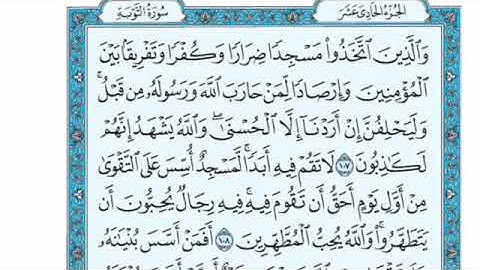 الجُزْءُ الحَادِىَ عَشَرَ
سُورَةُ التَّوْبَةِ
وَٱلَّذِينَ ٱتَّخَذُوا۟ مَسْجِدًا ضِرَارًا وَكُفْرًا وَتَفْرِيقًۢا بَيْنَ
ٱلْمُؤْمِنِينَ وَإِرْصَادًا لِّمَنْ حَارَبَ ٱللَّهَ وَرَسُولَهُۥ مِن قَبْلُ ۚ
وَلَيَحْلِفُنَّ إِنْ أَرَدْنَآ إِلَّا ٱلْحُسْنَىٰ ۖ وَٱللَّهُ يَشْهَدُ إِنَّهُمْ
لَكَٰذِبُونَ ١٠٧ لَا تَقُمْ فِيهِ أَبَدًا ۚ لَّمَسْجِدٌ أُسِّسَ عَلَى ٱلتَّقْوَىٰ
مِنْ أَوَّلِ يَوْمٍ أَحَقُّ أَن تَقُومَ فِيهِ ۚ فِيهِ رِجَالٌ يُحِبُّونَ أَن
يَتَطَهَّرُوا۟ ۚ وَٱللَّهُ يُحِبُّ ٱلْمُطَّهِّرِينَ ١٠٨ أَفَمَنْ أَسَّسَ بُنْيَٰنَهُۥ